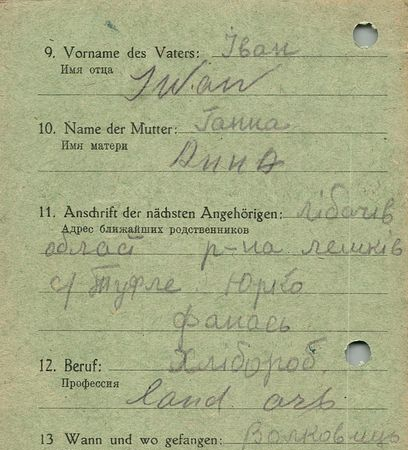 9. Vorname des Vaters: Іван
Имя отца
Iwan
10. Name der Mutter: Ганна
Имя матери
Анна
11. Anschrift der nächsten Angehörigen:
Адрес ближайших родственников
област р-на
с/ Юрко
12. Beruf: Хлібороб.
Профессия
land arb
13 Wann und wo gefangen: